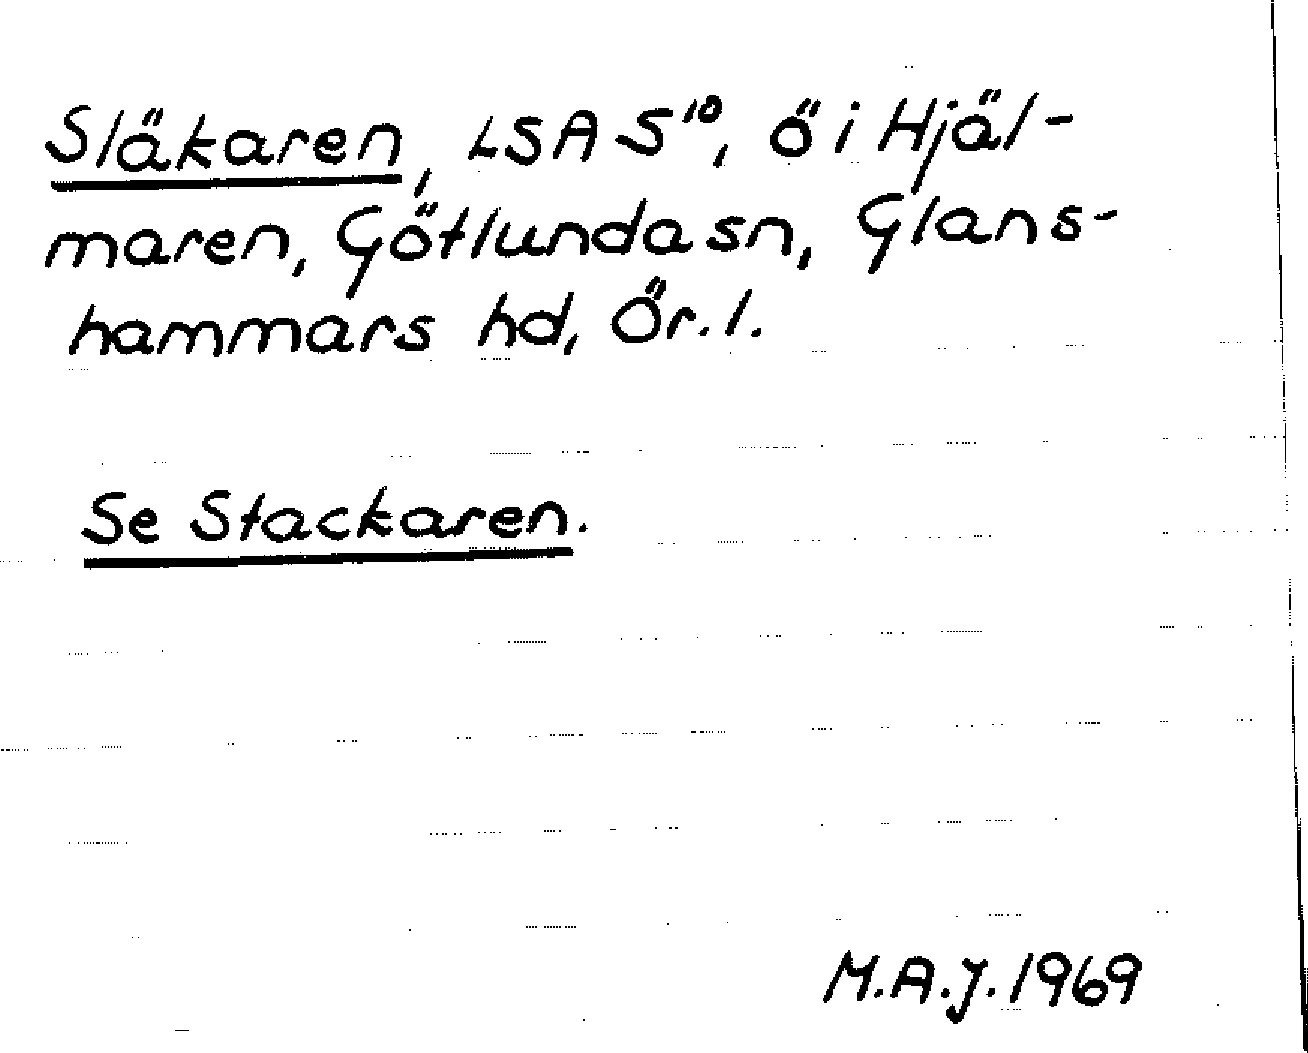 Släkaren, LSA S¹⁰, ö i Hjäl-
maren, Götlunda sn, Glans-
hammars hd, Ör. l.
Se Stackaren.
M.A.J. 1969